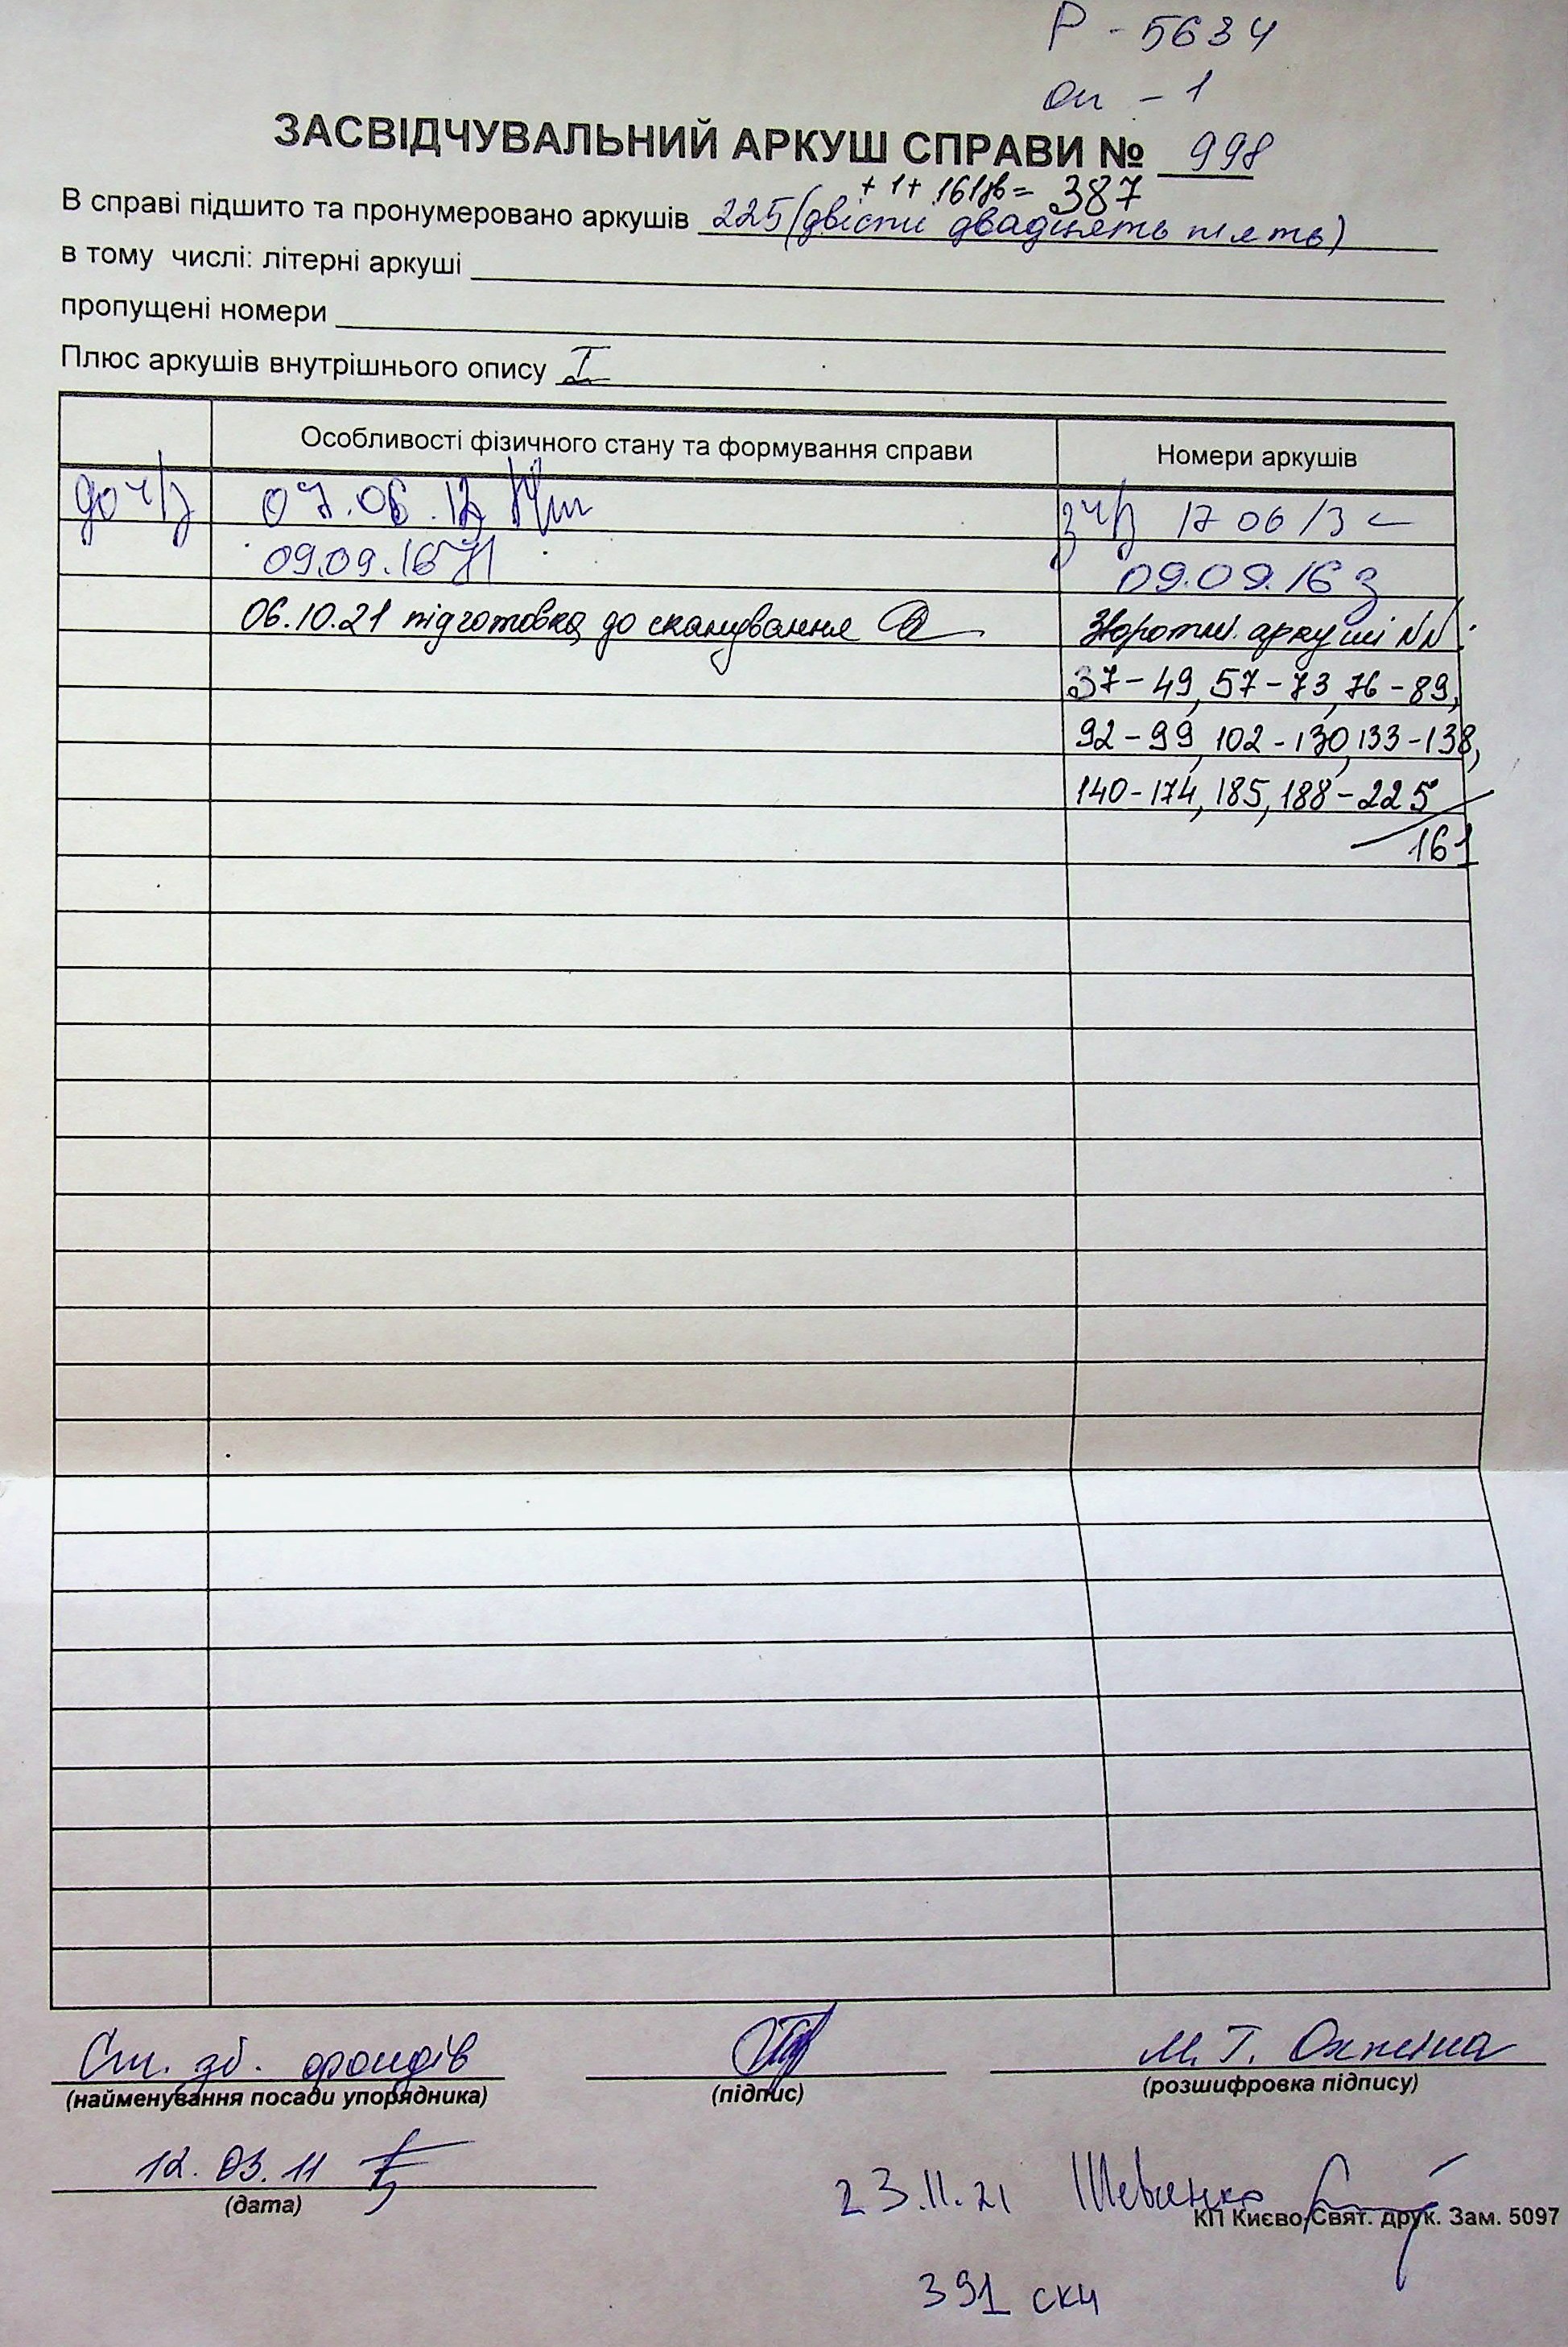 Р - 5634
оп - 1
ЗАСВІДЧУВАЛЬНИЙ АРКУШ СПРАВИ № 998
+ 1 + 161зв = 387
В справі підшито та пронумеровано аркушів 225 (двісти двадцять пять)
в тому числі: літерні аркуші
пропущені номери
Плюс аркушів внутрішнього опису I
Особливості фізичного стану та формування справи Номери аркушів
до ч/з 07.06.12 з ч/з 17 06 13
09.09.16 09.09.16 з
06.10.21 підготовка до сканування Зворотні аркуші NN:
37-49, 57-73, 76-89,
92-99, 102-130, 133-138,
140-174, 185, 188-225
161
Ст. зб. фондів М. Т.
(найменування посади упорядника) (підпис) (розшифровка підпису)
12.03.11
(дата)
23.11.21
КП Києво-Свят. друк. Зам. 5097
391 скч